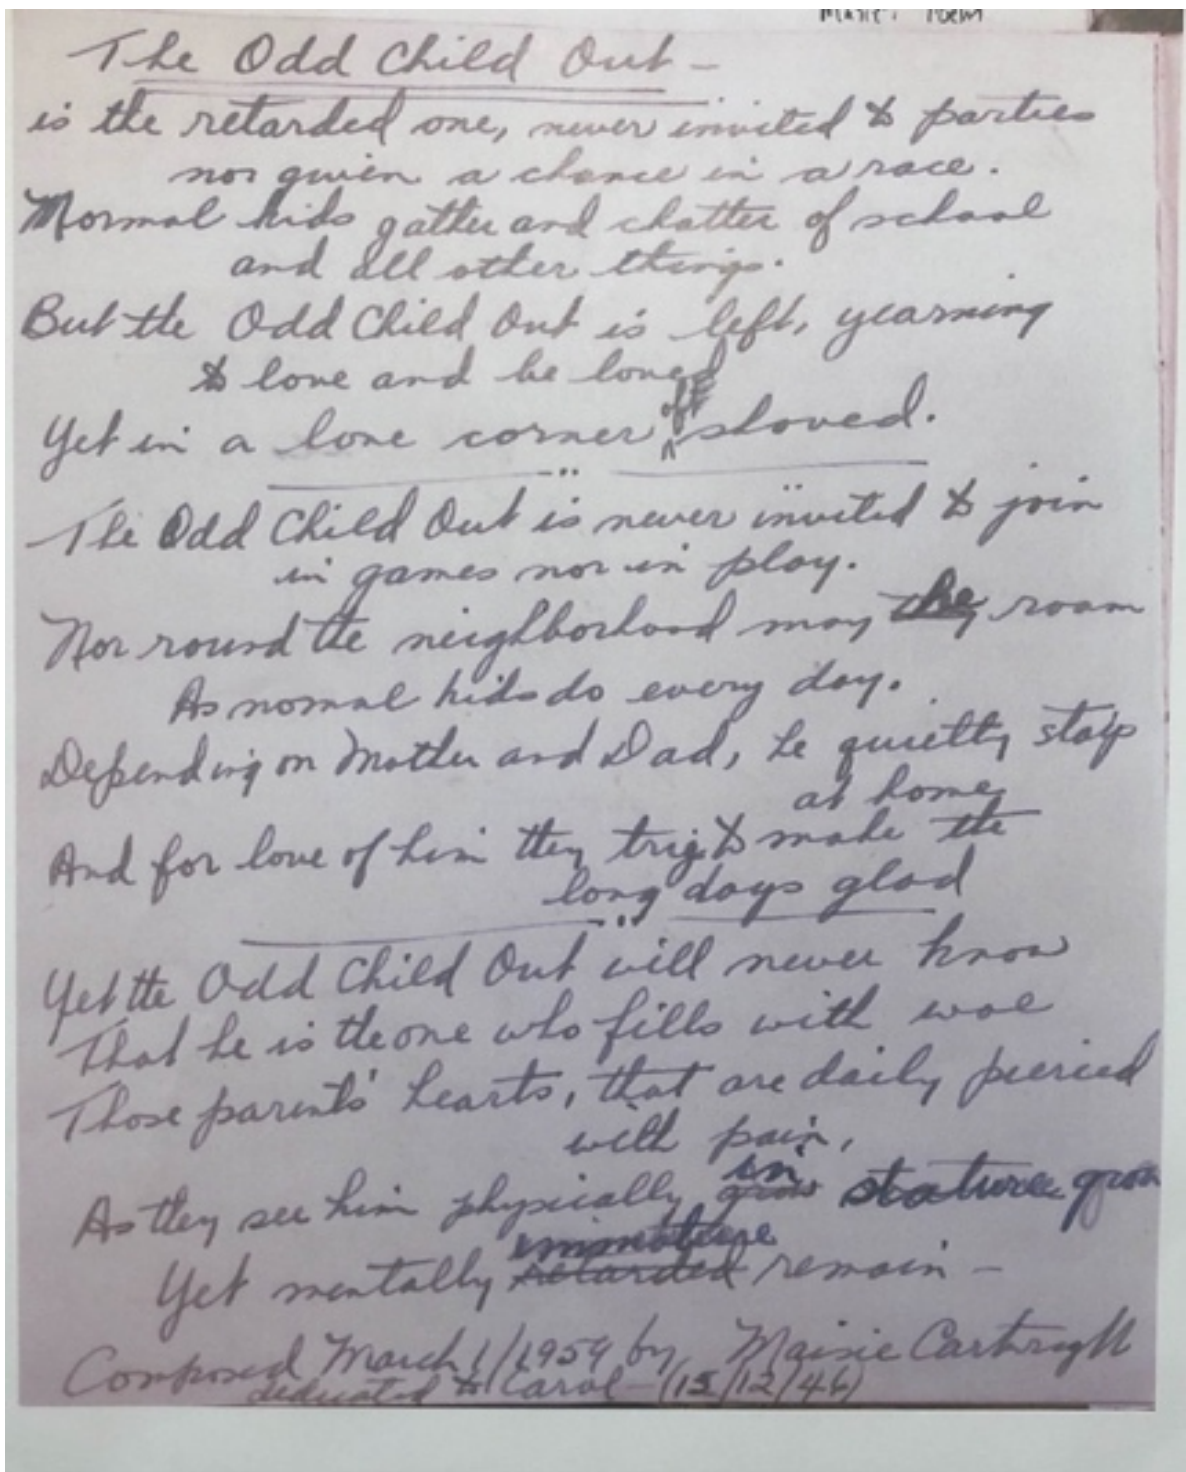 Poem
The Odd Child Out -
is the retarded one, never invited to parties
nor given a chance in a race.
Normal kids gather and chatter of school
and all other things.
But the Odd Child Out is left, yearning
to love and be loved
Yet in a lone corner oft shoved.
The Odd Child Out is never invited to join
in games nor in play.
Nor round the neighborhood may they roam
As normal kids do every day.
Depending on Mother and Dad, he quietly stays
at home,
And for love of him they try to make the
long days glad
Yet the Odd Child Out will never know
That he is the one who fills with woe
Those parents' hearts, that are daily pierced
with pain,
As they see him physically grow in stature grow
Yet mentally retarded immature remain -
Composed March 1/1959 by Maisie Cartwright
dedicated to Carol - (15/12/46)